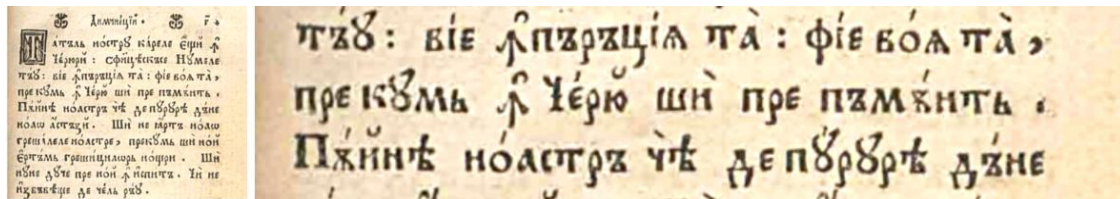 Татъль но́стрꙋ ка́реле є҆щи ꙟ
Че́рюри : сфи̂цѣскъсе Нꙋмеле
тъ́ꙋ : ві́е ꙟпъръці́ѧ та̀ : фі́е во́ѧ та̀,
прекꙋ́мь ꙟ Че́рю шѝ пре пъмѫ́нть .
Пѫ́йнѣ но́астръ чѣ̀ де пꙋ́рꙋрѣ дъ́не
но́аѡ а҆́стъзй . Шѝ не ꙗ҆́ртъ но́аѡ
греша́леле но́астре, прекꙋ́мь шѝ но́й
Є҆ртъ́мь греши́цилѡрь но́щри . Шѝ
нꙋ́не дꙋ́че пре но́й ꙟ и҆спи́тъ . Чѝ не
де че́ль ръ́ꙋ .
тъ́ꙋ : ві́е ꙟпъръці́ѧ та̀ : фі́е во́ѧ та̀,
прекꙋ́мь ꙟ Че́рю шѝ пре пъмѫ́нть .
Пѫ́йнѣ но́астръ чѣ̀ де пꙋ́рꙋрѣ дъ́не